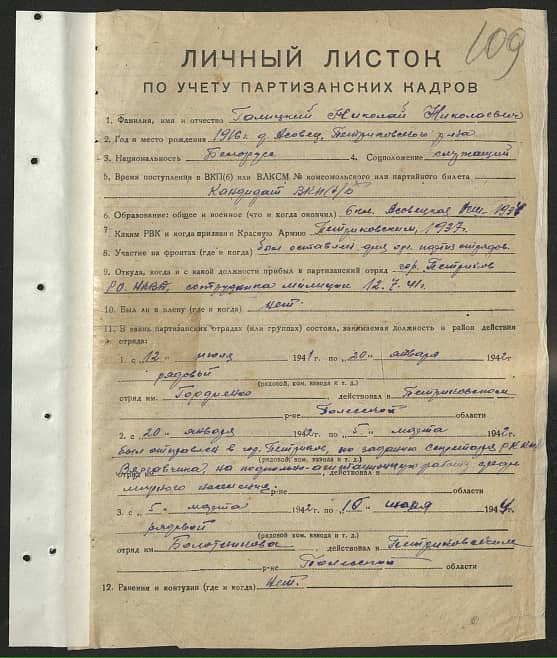 109
ЛИЧНЫЙ ЛИСТОК
ПО УЧЕТУ ПАРТИЗАНСКИХ КАДРОВ
1. Фамилия, имя и отчество Галицкий Николай Николаевич
2. Год и место рождения 1916 г. д. Асовец, Петриковского р-на
3. Национальность Белорус 4. Соцположение служащий
5. Время поступления в ВКП(б) или ВЛКСМ № комсомольского или партийного билета
Кандидат ВКП(б)
6. Образование: общее и военное (что и когда окончил) 6 кл. Асовецкая 193
7. Каким РВК и когда призван в Красную Армию Петриковским, 1937 г.
8. Участие на фронтах (где и когда) был оставлен для орг. партиз. отрядов.
9. Откуда, когда и с какой должности прибыл в партизанский отряд гор. Петриков
РО. НКВД, сотрудника милиции 12.7.41 г.
10. Был ли в плену (где и когда) нет.
11. В каких партизанских отрядах (или группах) состоял, занимаемая должность и район действия
отряда:
1. с „12" июля 1941 г. по „20" января 1942 г
рядовой
(рядовой, ком. взвода и т. д.)
отряд им. Гордиенко действовал в Петриковском
р-не Полесской области
2. с „20" января 1942 г. по „5" марта 1942 г
был отправлен в гор. Петриков, по заданию секретаря РК КП(б)
(рядовой, ком. взвода и т. д.)
на подпольно-агитационную работу среди
отряд им. действовал в
мирного населения. р-не области
3. с „5" марта 1942 г. по „10" июня 1944 г
рядовой
(рядовой, ком. взвода и т. д.)
отряд им. Болотникова действовал в Петриковским
р-не Полесской области
12. Ранения и контузии (где и когда) Нет.